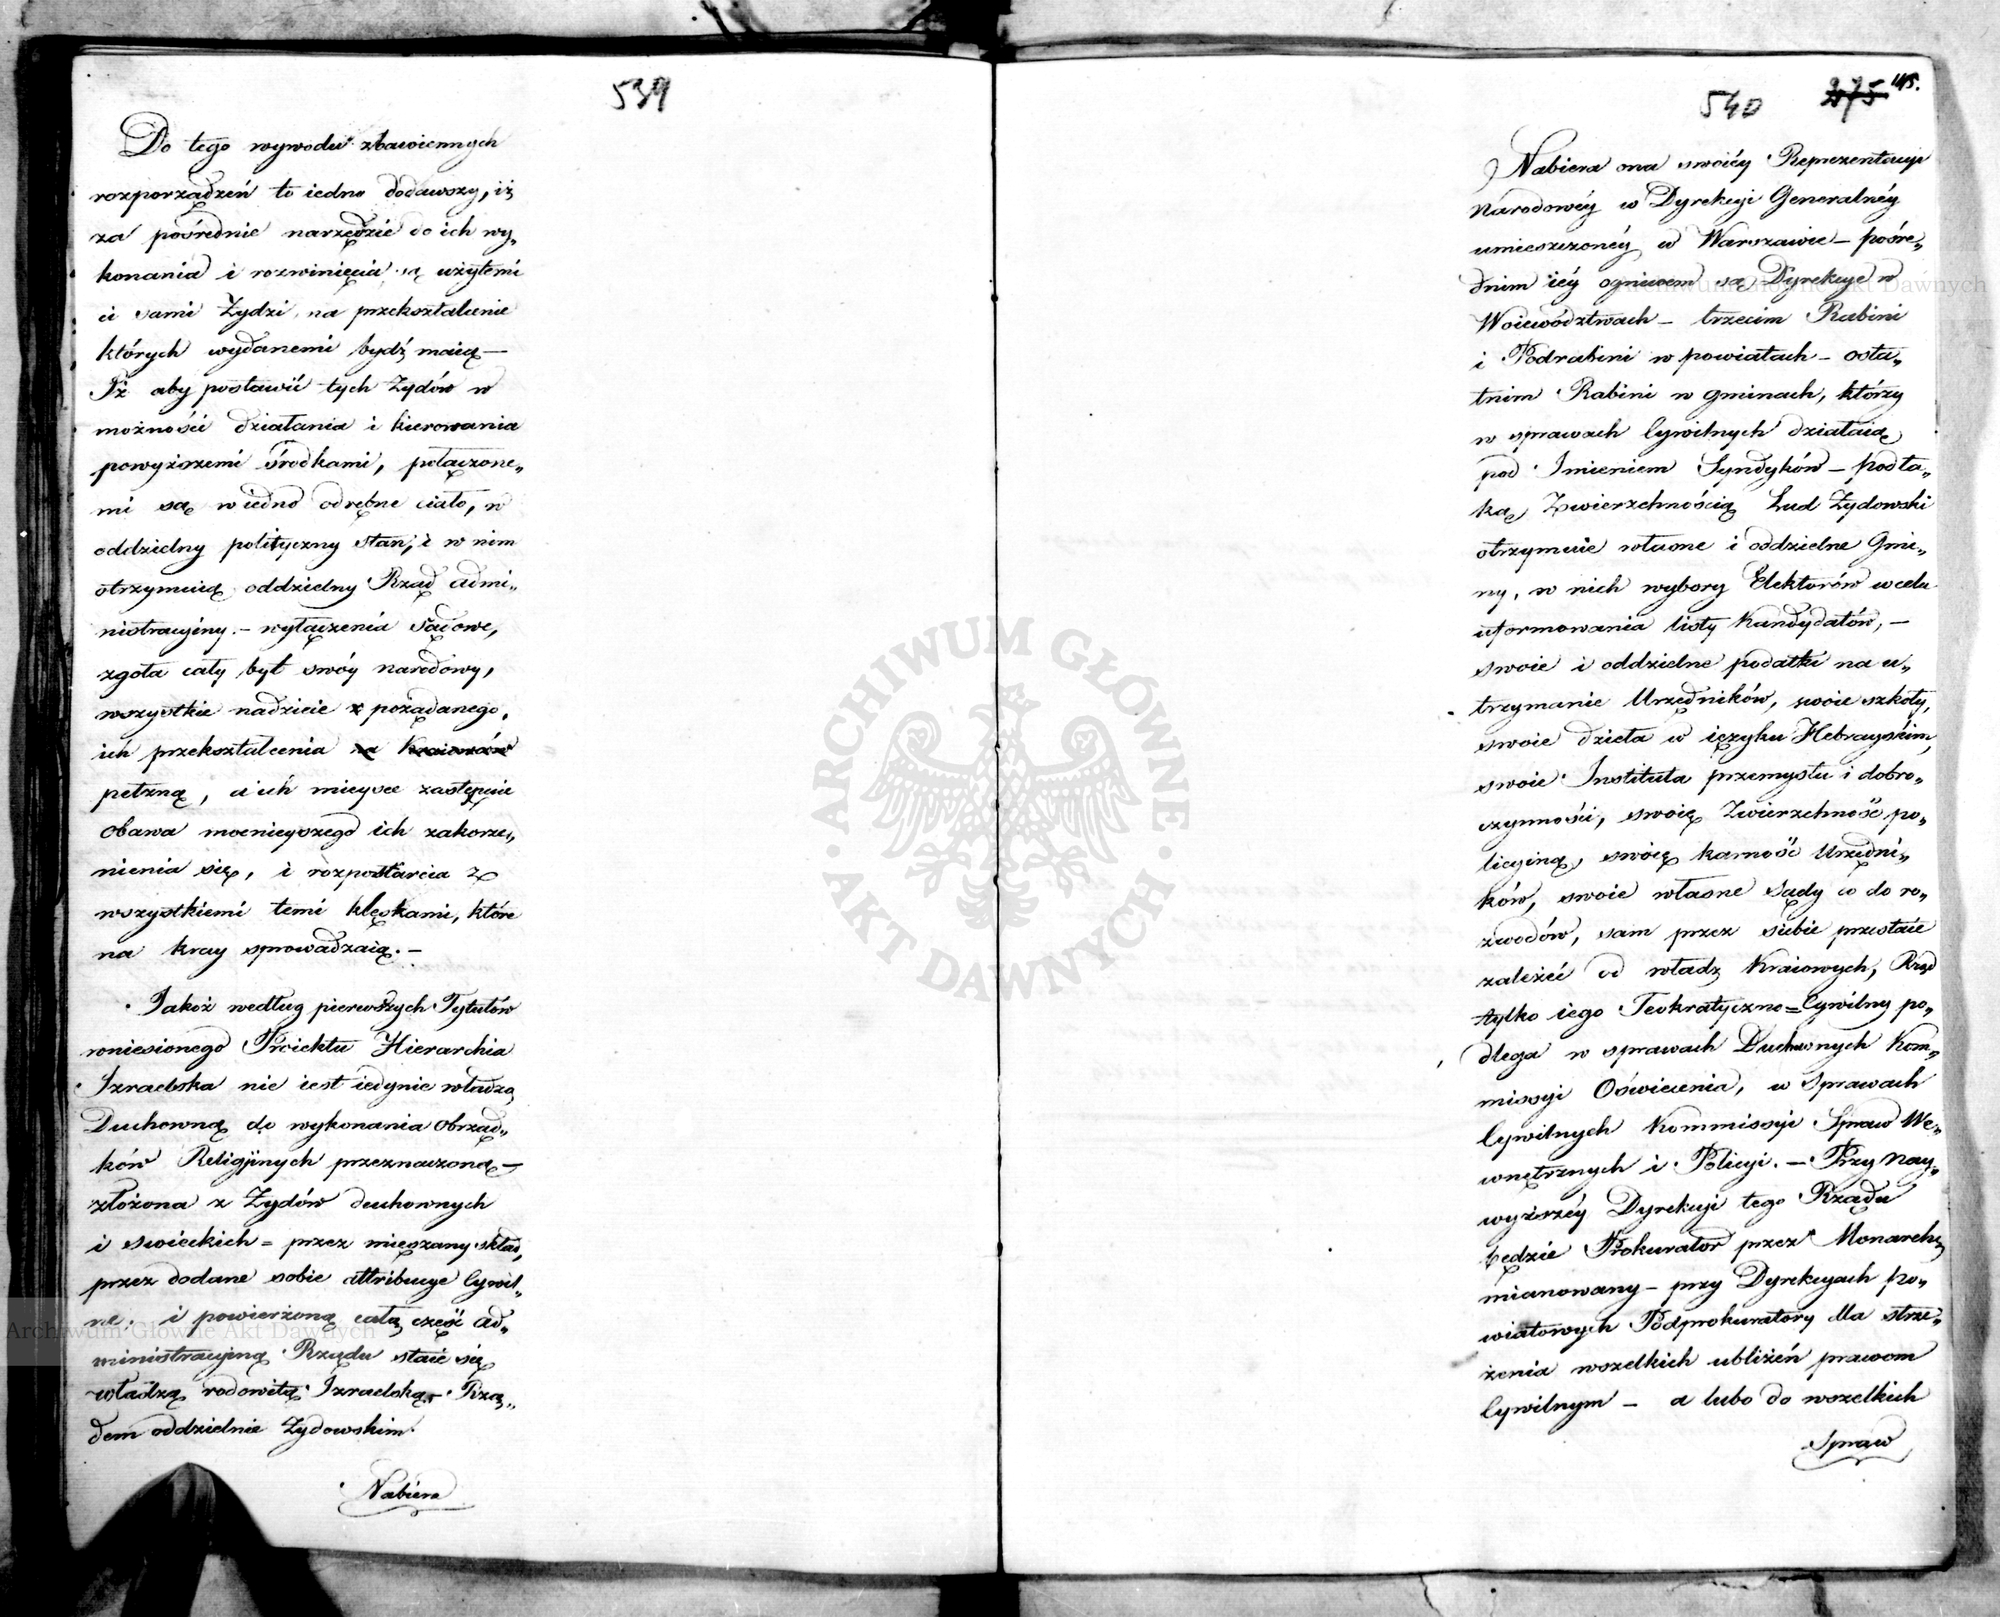 539
Do tego wywodu zbawiennych
rozporządzeń to iedno dodawszy, iż
za pośrednie narzędzie do ich wy„
konania i rozwinięcia są użytemi
ci sami Żydzi, na przekształcenie
których wydanemi bydź maią —
Iż aby postawić tych Żydów w
możności działania i kierowania
powyższemi środkami, połączone„
mi są w iedno odrębne ciało, w
oddzielny polityczny stan, i w nim
otrzymuią oddzielny Rząd admi„
nistracyiny. — wyłączenia Sądowe,
zgoła cały byt swóy narodowy,
wszystkie nadzieie z pożądanego,
ich przekształcenia na Kraiowców
pełzną, a ich mieysce zastępuie
obawa mocnieyszego ich zakorze„
nienia się, i rozpostarcia z
wszystkiemi temi klęskami, które
na kray sprowadzaią. —
Jakoż według pierwszych Tytułów
wniesionego Proiektu Hierarchia
Izraelska nie iest iedynie władzą
Duchowną do wykonania obrząd„
ków Religijnych przeznaczoną —
złożona z Żydów duchownych
i swieckich = przez mięszany skład,
przez dodane sobie attribucye Cywil„
ne, i powierzoną całą część ad„
ministracyiną Rządu staie się
władzą rodowitą Izraelską — Rzą„
dem oddzielnie Żydowskim.
Nabiera
540 275 115.
Nabiera ona swoiéy Reprezentacyi
Narodowéy w Dyrekcyi Generalnéy
umieszczonéy w Warszawie — pośre„
dnim iéy ogniwem są Dyrekcye w
Woiewództwach — trzecim Rabini
i Podrabini w powiatach — osta„
tnim Rabini w gminach, którzy
w sprawach Cywilnych działaią
pod Imieniem Syndyków — pod ta„
ką Zwierzchnością Lud Żydowski
otrzymuie własne i oddzielne Gmi„
ny, w nich wybory Elektorów w celu
uformowania listy Kandydatów, —
swoie i oddzielne podatki na u„
trzymanie Urzędników, swoie szkoły,
swoie dzieła w ięzyku Hebrayskim,
swoie Instituta przemysłu i dobro„
czynności, swoię Zwierzchność po„
licyiną, swoię karność Urzędni„
ków, swoie własne Sądy co do ro„
zwodów, sam przez siebie przestaie
zależéć od władz Kraiowych, Rząd
tylko iego Teokratyczno=Cywilny po„
dlega w sprawach Duchownych Kom„
missyi Oświecenia, w Sprawach
Cywilnych Kommissyi Spraw We„
wnętrznych i Policyi. — Przy Nay„
wyższéy Dyrekcyi tego Rządu
będzie Prokurator przez Monarchę
mianowany — przy Dyrekcyach po„
wiatowych Podprokuratory dla strze„
żenia wszelkich ubliżeń prawom
Cywilnym — a lubo do wszelkich
Spraw
ARCHIWUM GŁÓWNE
AKT DAWNYCH
Archiwum Główne Akt Dawnych
Archiwum Główne Akt Dawnych